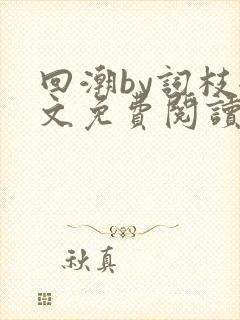 回潮by詞枝
文免費閱讀
秋真